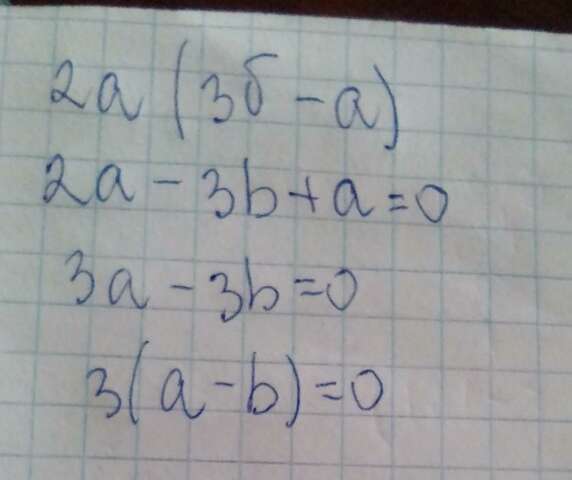 2a (3б - a)
2a - 3b + a = 0
3a - 3b = 0
3(a - b) = 0